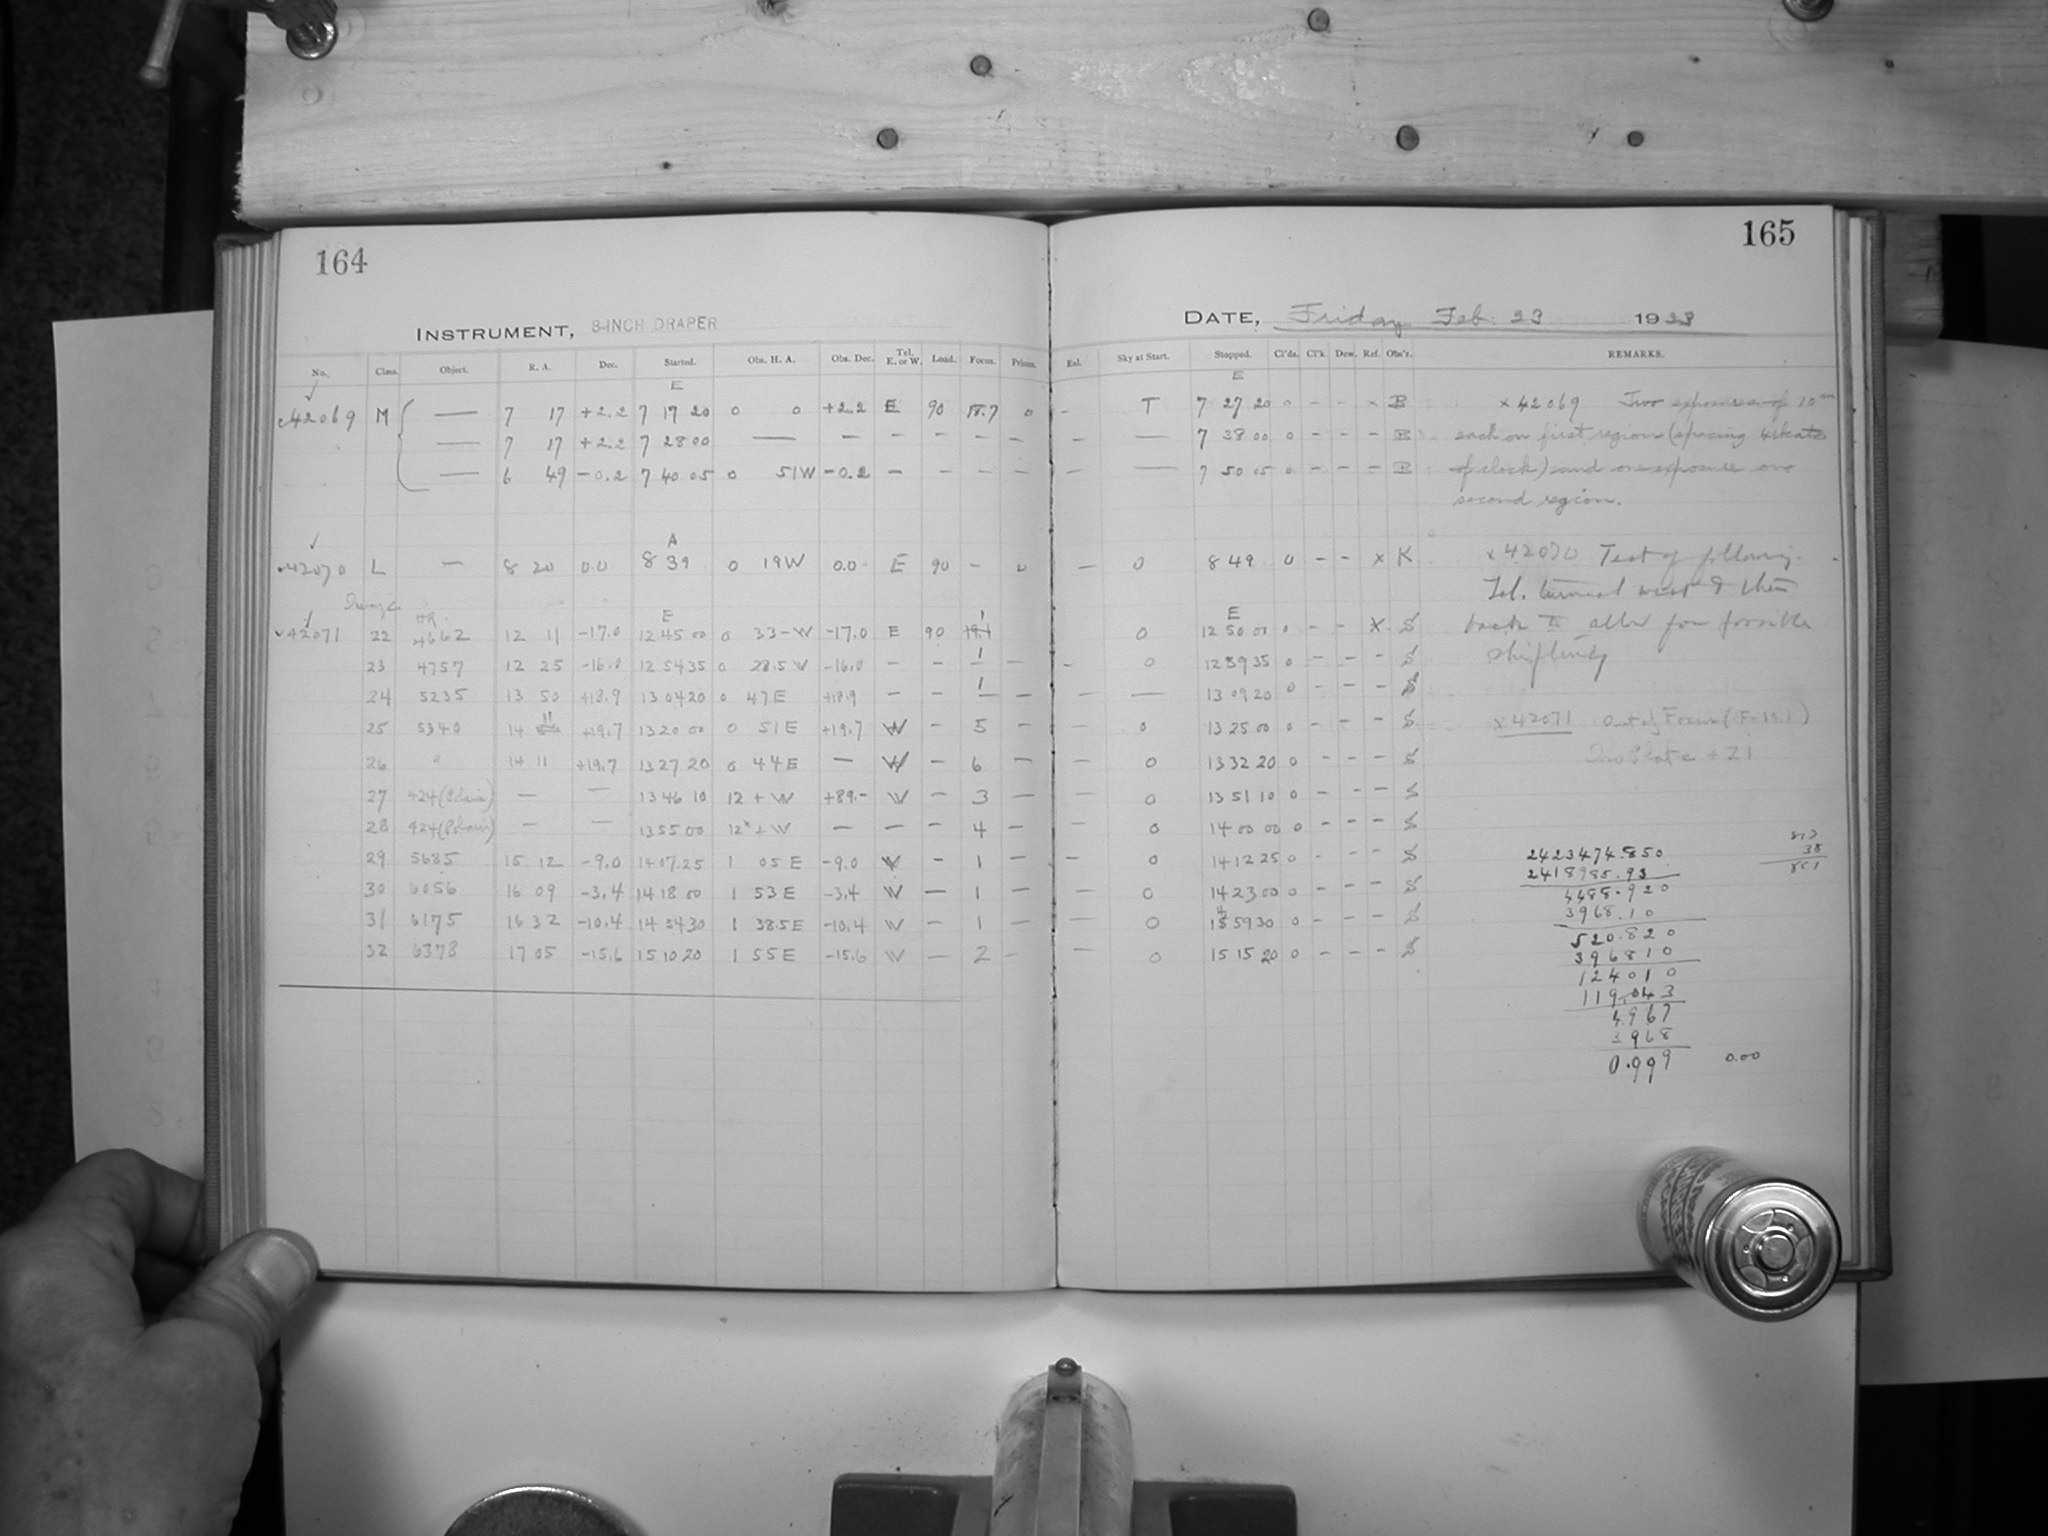 164
165
INSTRUMENT, 8-INCH DRAPER
DATE, Friday Feb. 23 1923
No. Class. Object. R. A. Dec. Started. Obs. H. A. Obs. Dec. Tel. E. or W. Load. Focus. Prism. Exl. Sky at Start. Stopped. Cl'ds. Cl'k. Dew. Ref. Obs'r. REMARKS.
E E
c42069 M — 7 17 +2.2 7 17 20 0 0 +2.2 E 90 18.7 0 - T 7 27 20 0 - - x B x 42069 Two exposures of 10m
— 7 17 +2.2 7 28 00 — — — — — — — — 7 38 00 0 - - - B each on first region (spacing
— 6 49 -0.2 7 40 05 0 51W -0.2 — — — — — — 7 50 05 0 - - - B of clock) and one exposure on
second region.
A
42070 L — 8 20 0.0 8 39 0 19W 0.0 E 90 - 0 — 0 8 49 0 - - x K x 42070 Test of following.
Tel. turned west & then
E E
42071 22 HR 4662 12 11 -17.0 12 45 00 0 33-W -17.0 E 90 1 0 12 50 00 0 - - X S back to allow for possible
23 4757 12 25 -16.0 12 54 35 0 28.5 W -16.0 — — 1 — - 0 12 59 35 0 - - - S shifting
24 5235 13 50 +18.9 13 04 20 0 47 E +18.9 — — 1 — — — 13 09 20 0 - - - S
25 5340 14 11 +19.7 13 20 00 0 51 E +19.7 W - 5 0 13 25 00 0 - - - S x 42071 Out of Focus (F=19.1)
26 " 14 11 +19.7 13 27 20 0 44 E — W - 6 — — 0 13 32 20 0 - - - S Plate +21
27 424 (Polaris) — — 13 46 10 12 + W +89.- W — 3 — — 0 13 51 10 0 - - - S
28 424 (Polaris) — — 13 55 00 12 + W — — — 4 — 0 14 00 00 0 - - - S
29 5685 15 12 -9.0 14 07 25 1 05 E -9.0 W - 1 — — 0 14 12 25 0 - - - S
30 6056 16 09 -3.4 14 18 00 1 53 E -3.4 W — 1 — — 0 14 23 00 0 - - - S
31 6175 16 32 -10.4 14 54 30 1 38.5 E -10.4 W — 1 — — 0 14 59 30 0 - - - S
32 6378 17 05 -15.6 15 10 20 1 55 E -15.6 W — 2 — — 0 15 15 20 0 - - - S
2423474.850
2418985.93
4488.920
3968.10
520.820
396810
124010
119.043
4.967
3968
0.999 0.00